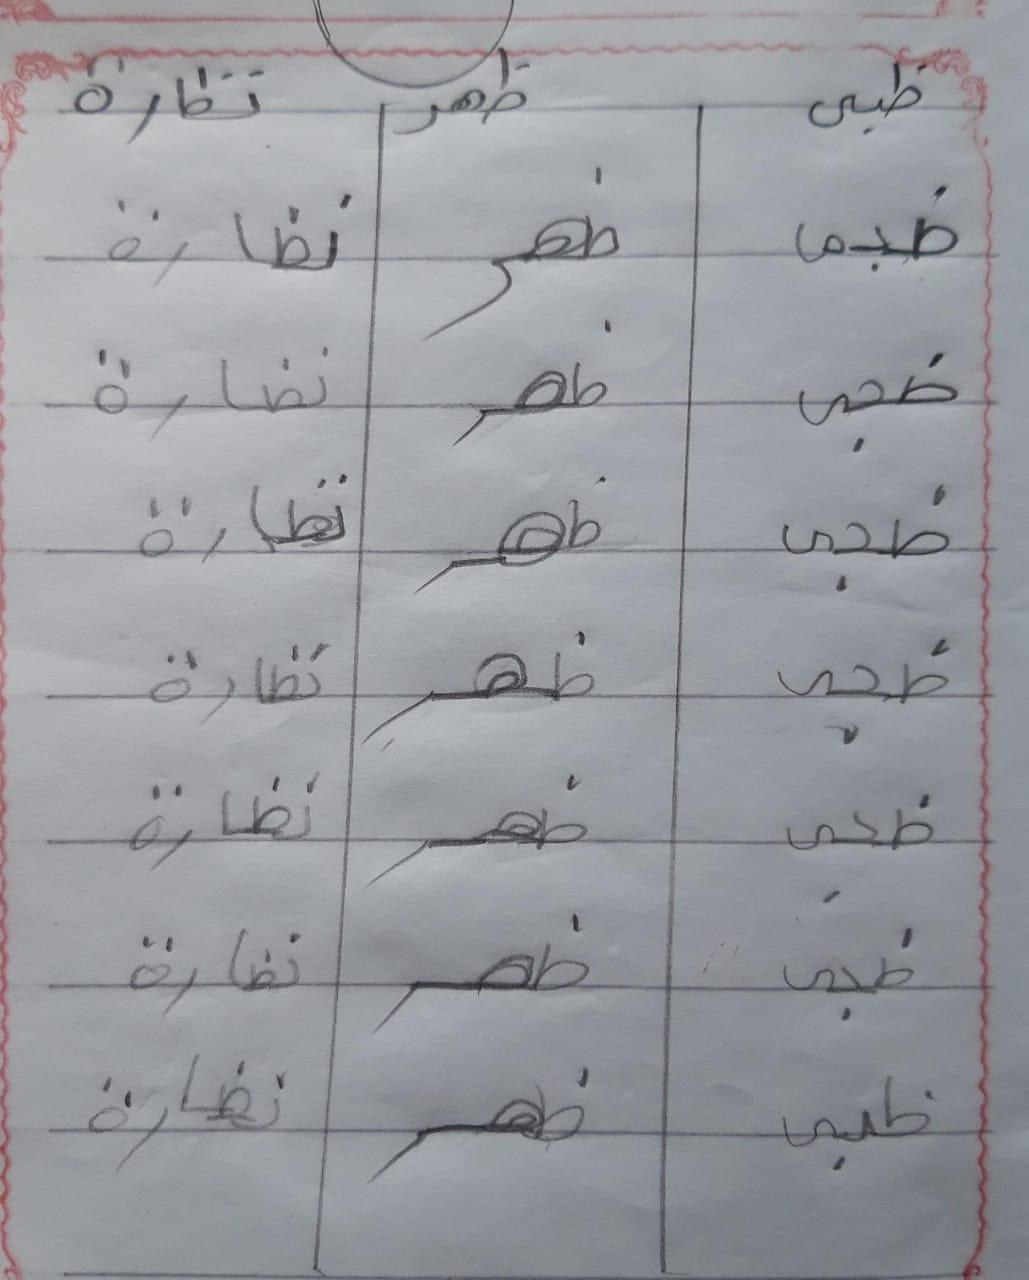 ظبي ظهر نظارة
ظبي ظهر نظارة
ظبي ظهر نظارة
ظبي ظهر نظارة
ظبي ظهر نظارة
ظبي ظهر نظارة
ظبي ظهر نظارة
ظبي ظهر نظارة